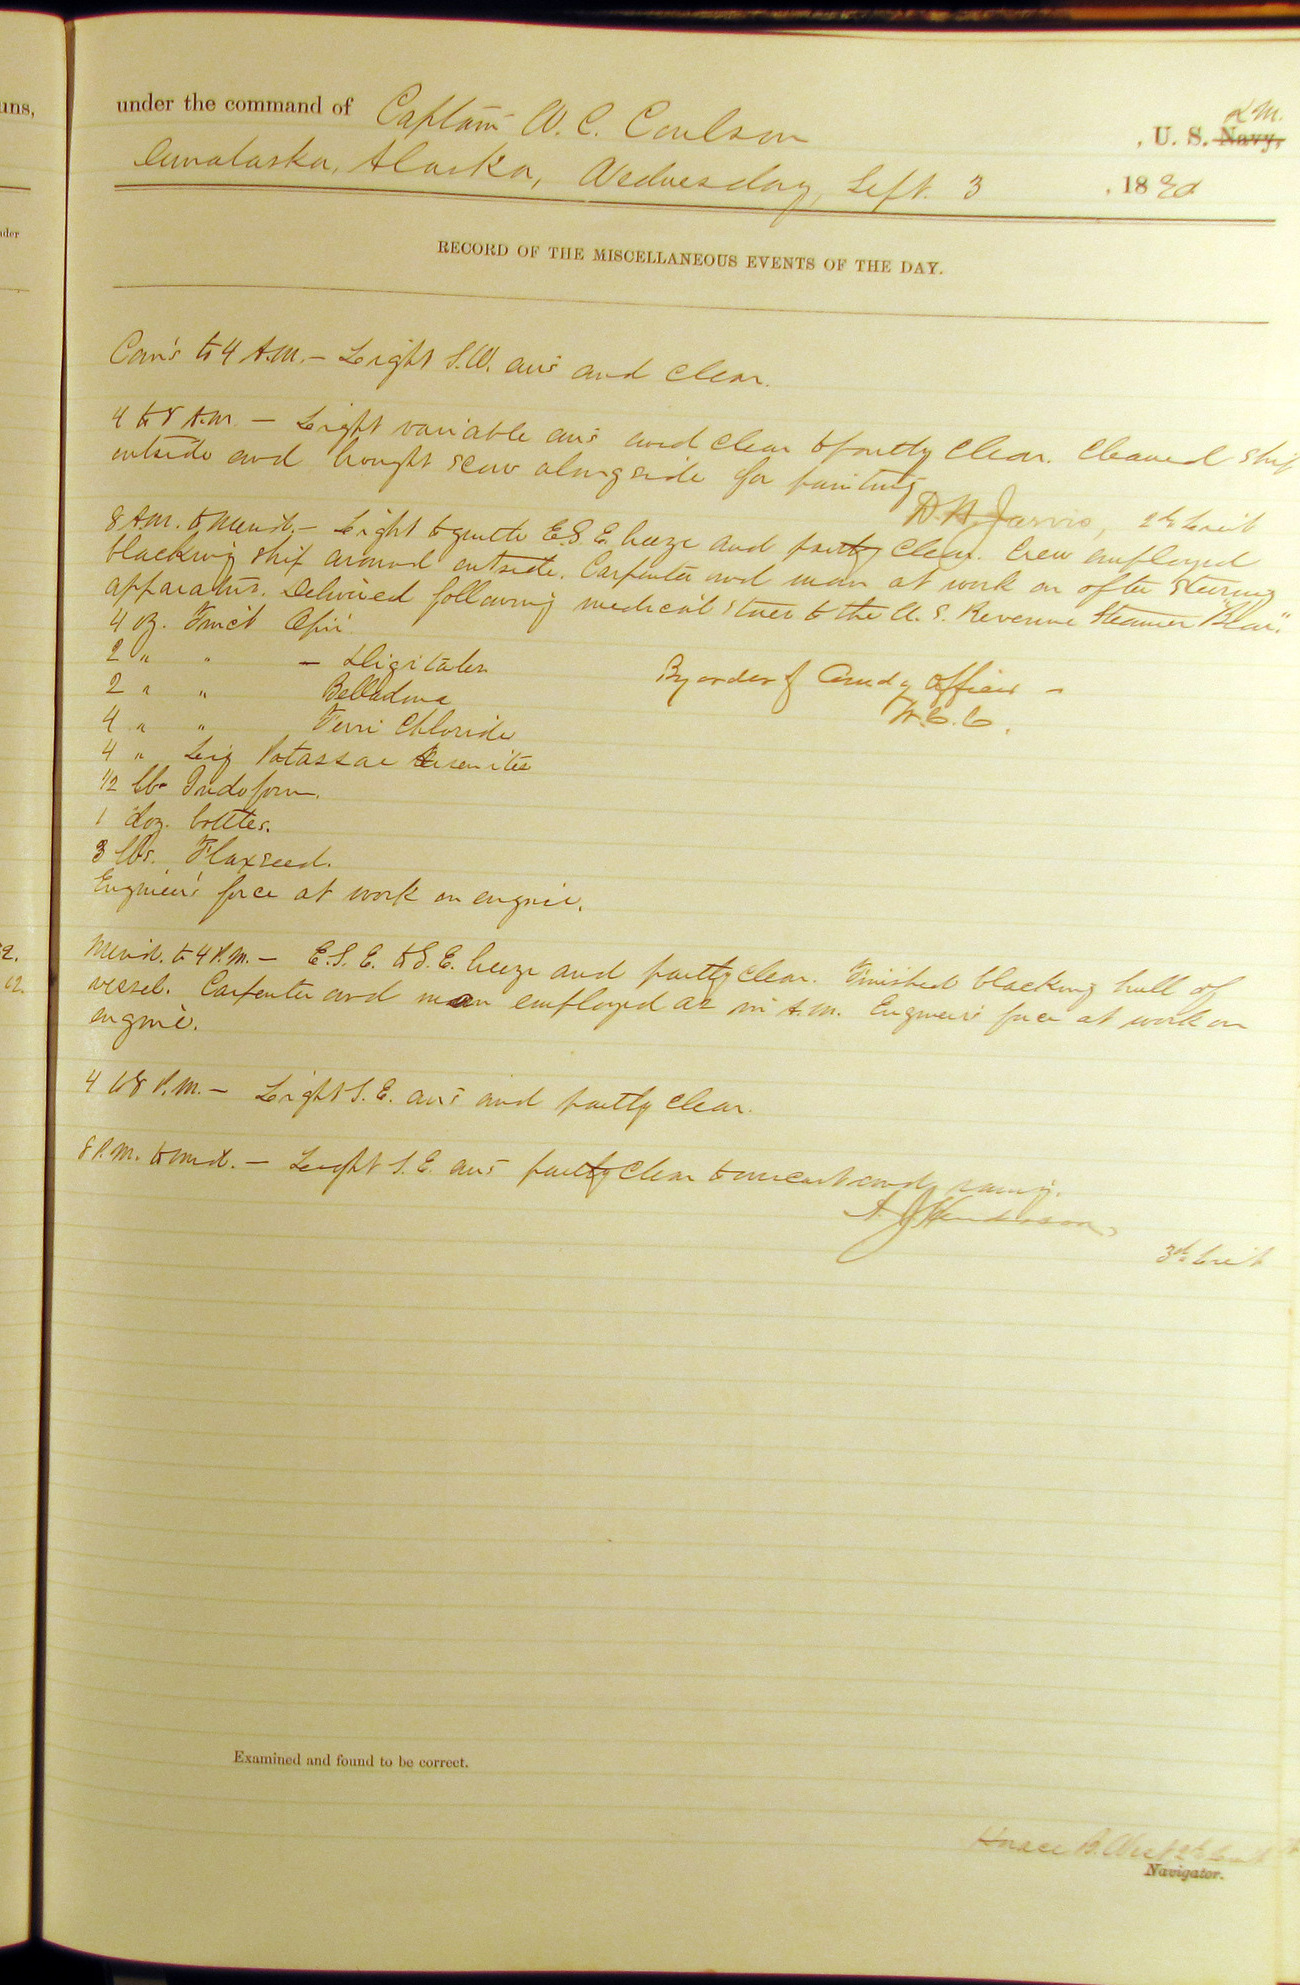 uns,
under the command of Captain W. C. Coulson , U. S. R.M. Navy,
Ounalaska, Alaska, Wednesday, Sept. 3 , 1890
nder
RECORD OF THE MISCELLANEOUS EVENTS OF THE DAY.
Com's to 4 A.M. — Light S.W. airs and clear.
4 to 8 A.M. — Light variable airs and clear to partly clear. Cleaned ship
outside and brought scow alongside for painting
D. H. Jarvis, 2d Lieut
8 A.M. to Merid. — Light to gentle E.S.E. breeze and partly clear. Crew employed
blacking ship around outside. Carpenter and man at work on after steering
apparatus. Delivered following medical stores to the U. S. Revenue Steamer "Bear."
4 oz. Tinct Opii
2 " " — Digitalis
2 " " Belladona
By order of Comdg Officer —
W. C. C.
4 " " Ferri Chloride
4 " Liq Potassae Arsenites
1/2 lb Iodoform.
1 doz. bottles.
3 lbs. Flaxseed.
Engineer's force at work on engine.
2.
Merid. to 4 P.M. — E.S.E. to S.E. breeze and partly clear. Finished blacking hull of
vessel. Carpenter and man employed as in A.M. Engineer's force at work on
engine.
4 to 8 P.M. — Light S.E. airs and partly clear.
8 P.M. to mid. — Light S.E. airs partly clear to overcast and rainy.
A. J. Henderson,
3d Lieut
Examined and found to be correct.
Horace B. West 2d Lieut
Navigator.